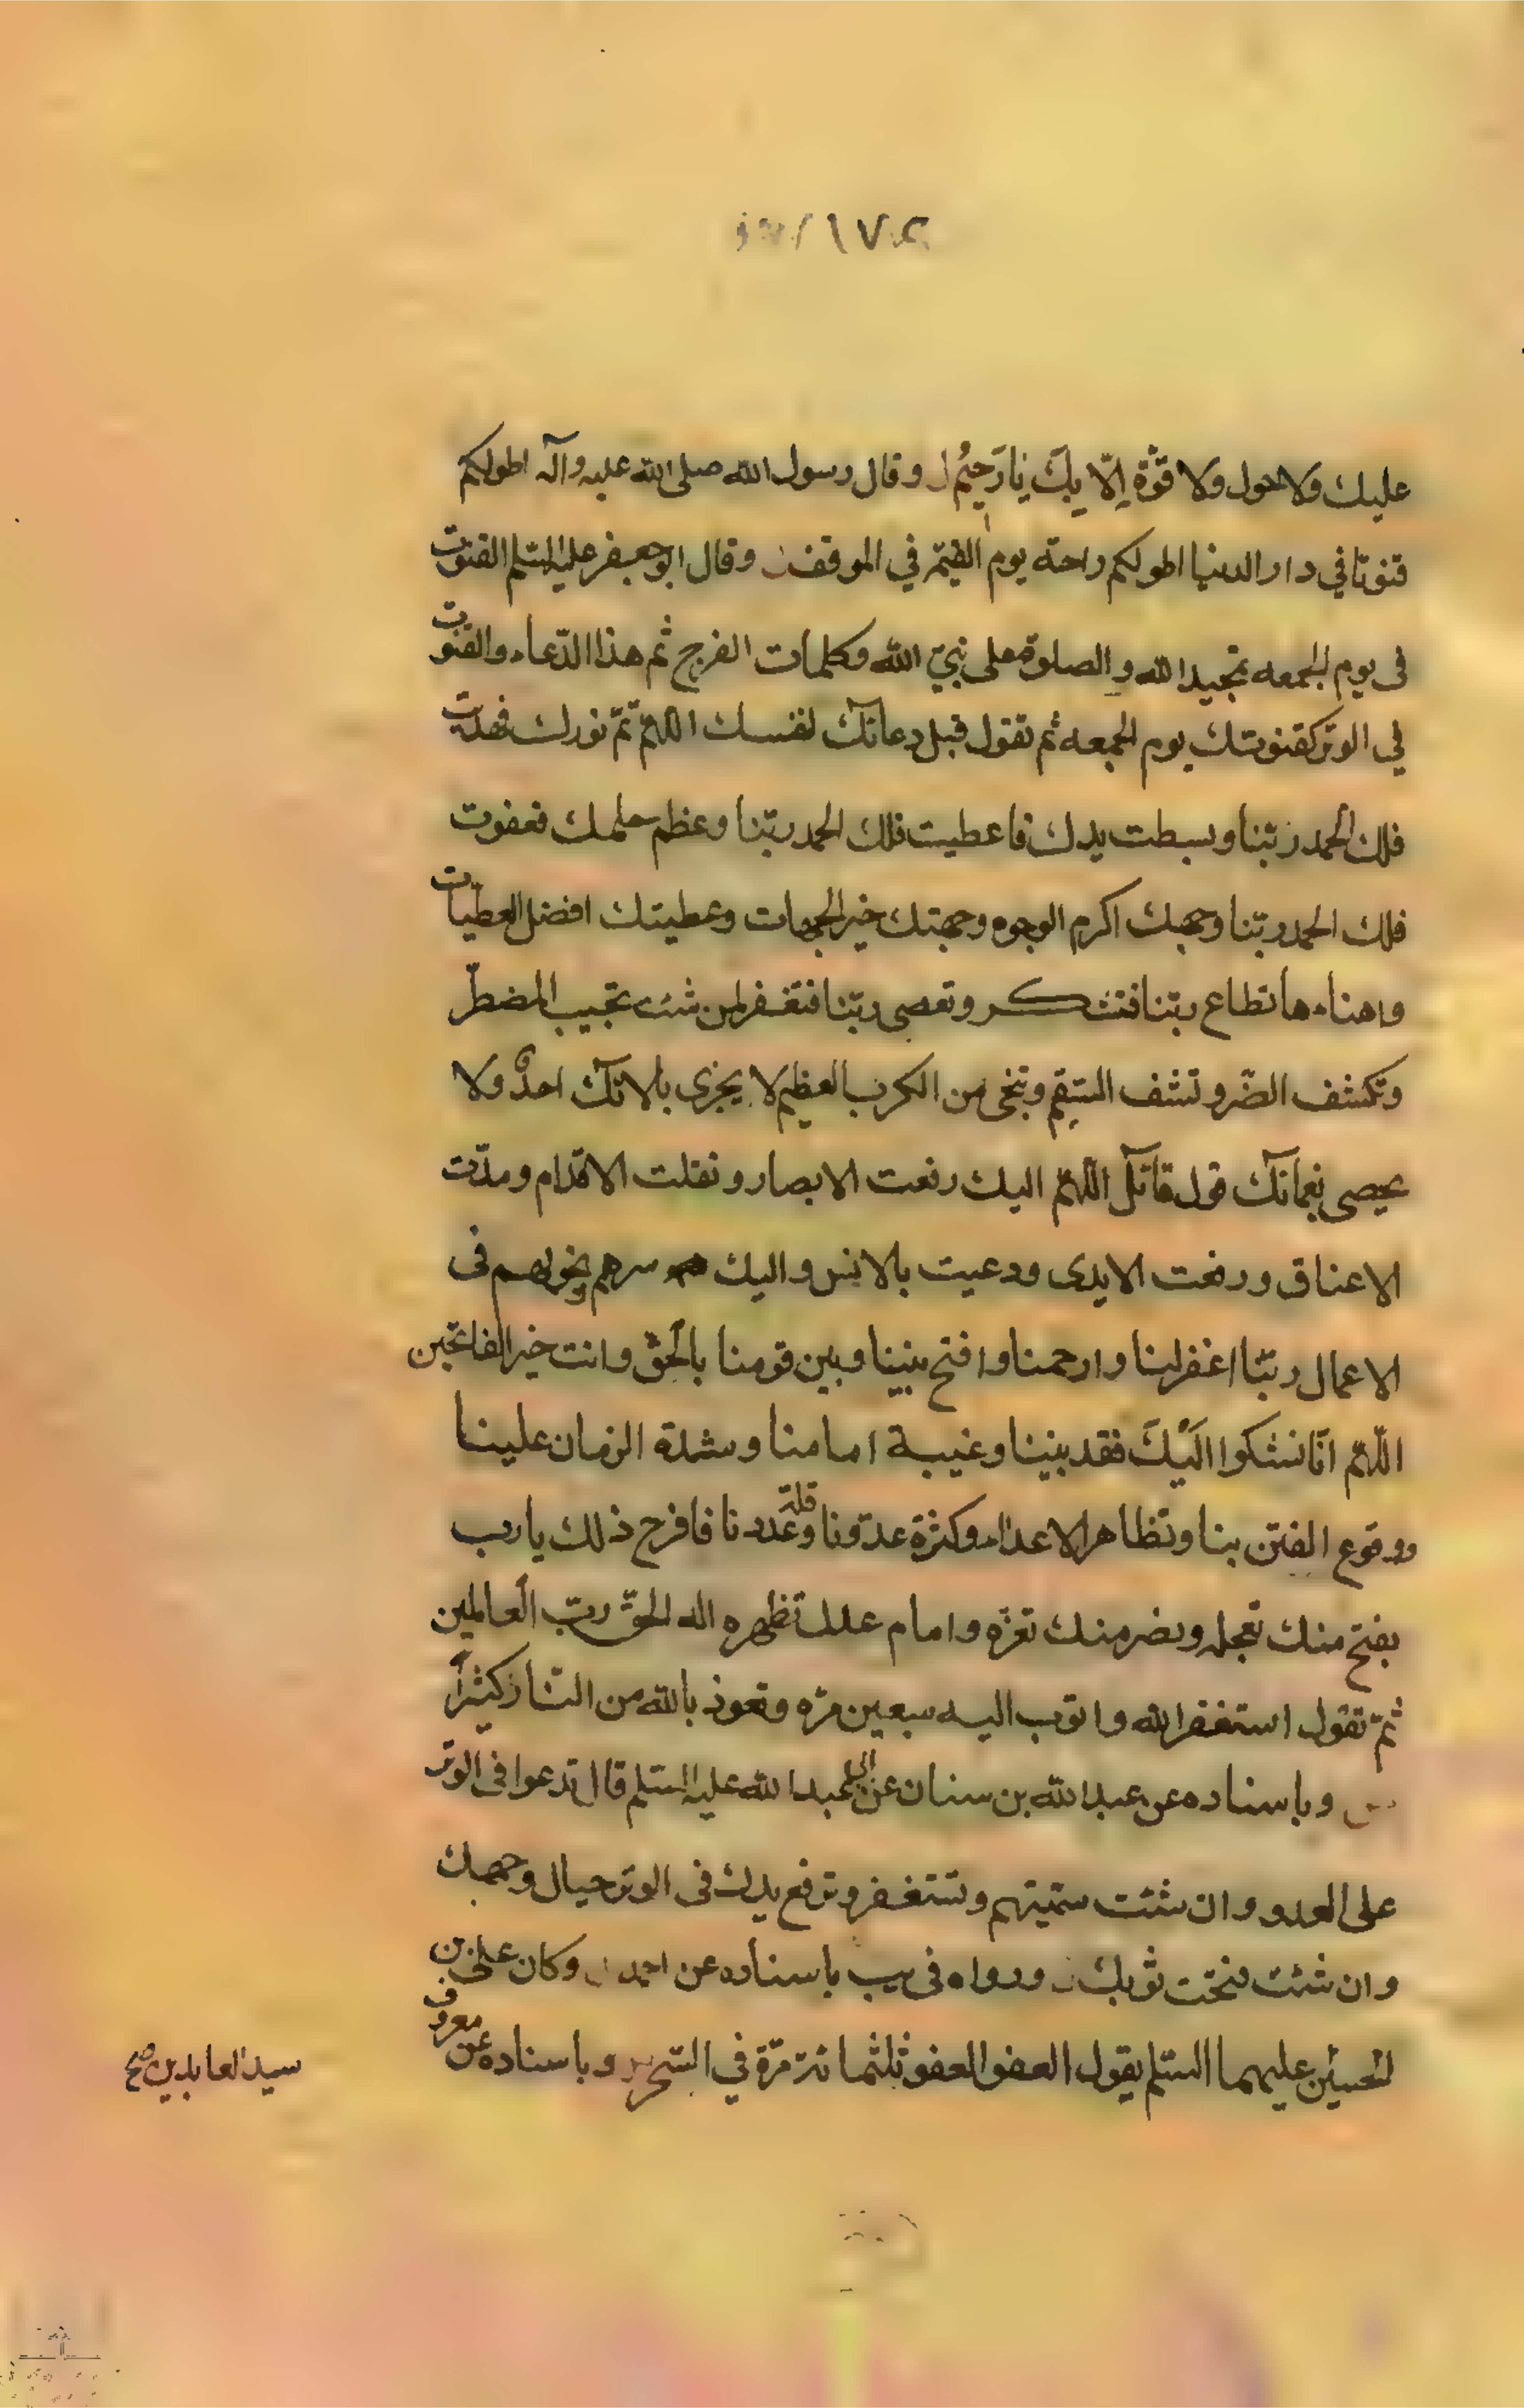 عليك ولا حول ولا قوّة إلّا بِكَ يا رَحِيْم وقال رسول الله صلى الله عليه وآله اطولكم
قنوتا في دار الدنيا اطولكم راحة يوم القيمة في الموقف وقال ابو جعفر عليه السلم القنوت
فى يوم الجمعه تمجيد الله والصلوة على نبيّ الله وكلمات الفرج ثم هذا الدّعاء والقنوت
في الوتر كقنوتك يوم الجمعه ثم تقول قبل دعائك لنفسك اللهمّ تمّ نورك فهديت
فلك الحمد ربّنا وبسطت يدك فاعطيت فلك الحمد ربّنا وعظم حلمك فعفوت
فلك الحمد ربّنا وجهك اكرم الوجوه وجهتك خير الجهات وعطيتك افضل العطيّات
واهناءها تطاع ربّنا فتشكر وتعصى ربّنا فتغفر لمن شئت تجيب المضطرّ
وتكشف الضّر وتشف السّقيم وتنجى من الكرب العظيم لا يجزى بالائك احدٌ ولا
يحصى نعمائك قول قائل اللّهمّ اليك رفعت الابصار ونقلت الاقدام ومدّت
الاعناق ورفعت الايدى ودعيت بالالسن واليك سرهم ونجواهم فى
الاعمال ربّنا اغفر لنا وارحمنا وافتح بيننا وبين قومنا بالحقّ وانت خير الفاتحين
اللّهمّ انّا نشكوا اليْكَ فقد نبينا وغيبة امامنا وشدة الزمان علينا
ووقوع الفتن بنا وتظاهر الاعداء وكثرة عدوّنا وقلّة عددنا فافرج ذلك يا رب
بفتح منك تعجله ونصر منك تعزّه وامام عدل تظهره اله الحقّ ربّ العالمين
ثمّ تقول استغفر الله واتوب اليه سبعين مرّه وتعوذ بالله من النّار كثيراً
وباسناده عن عبد الله بن سنان عن ابي عبد الله عليه السلم قال تدعوا فى الوتر
على العدو وان شئت سمّيتهم وتستغفر وترفع يدك فى الوتر حيال وجهك
وان شئت فتحت ثوبك ورواه فى يب باسناده عن احمد وكان على بن
الحسين عليهما السلم يقول العفو العفو ثلثمائة مرّة في السّحر وباسناده عن معروف
سيد العابدين صح